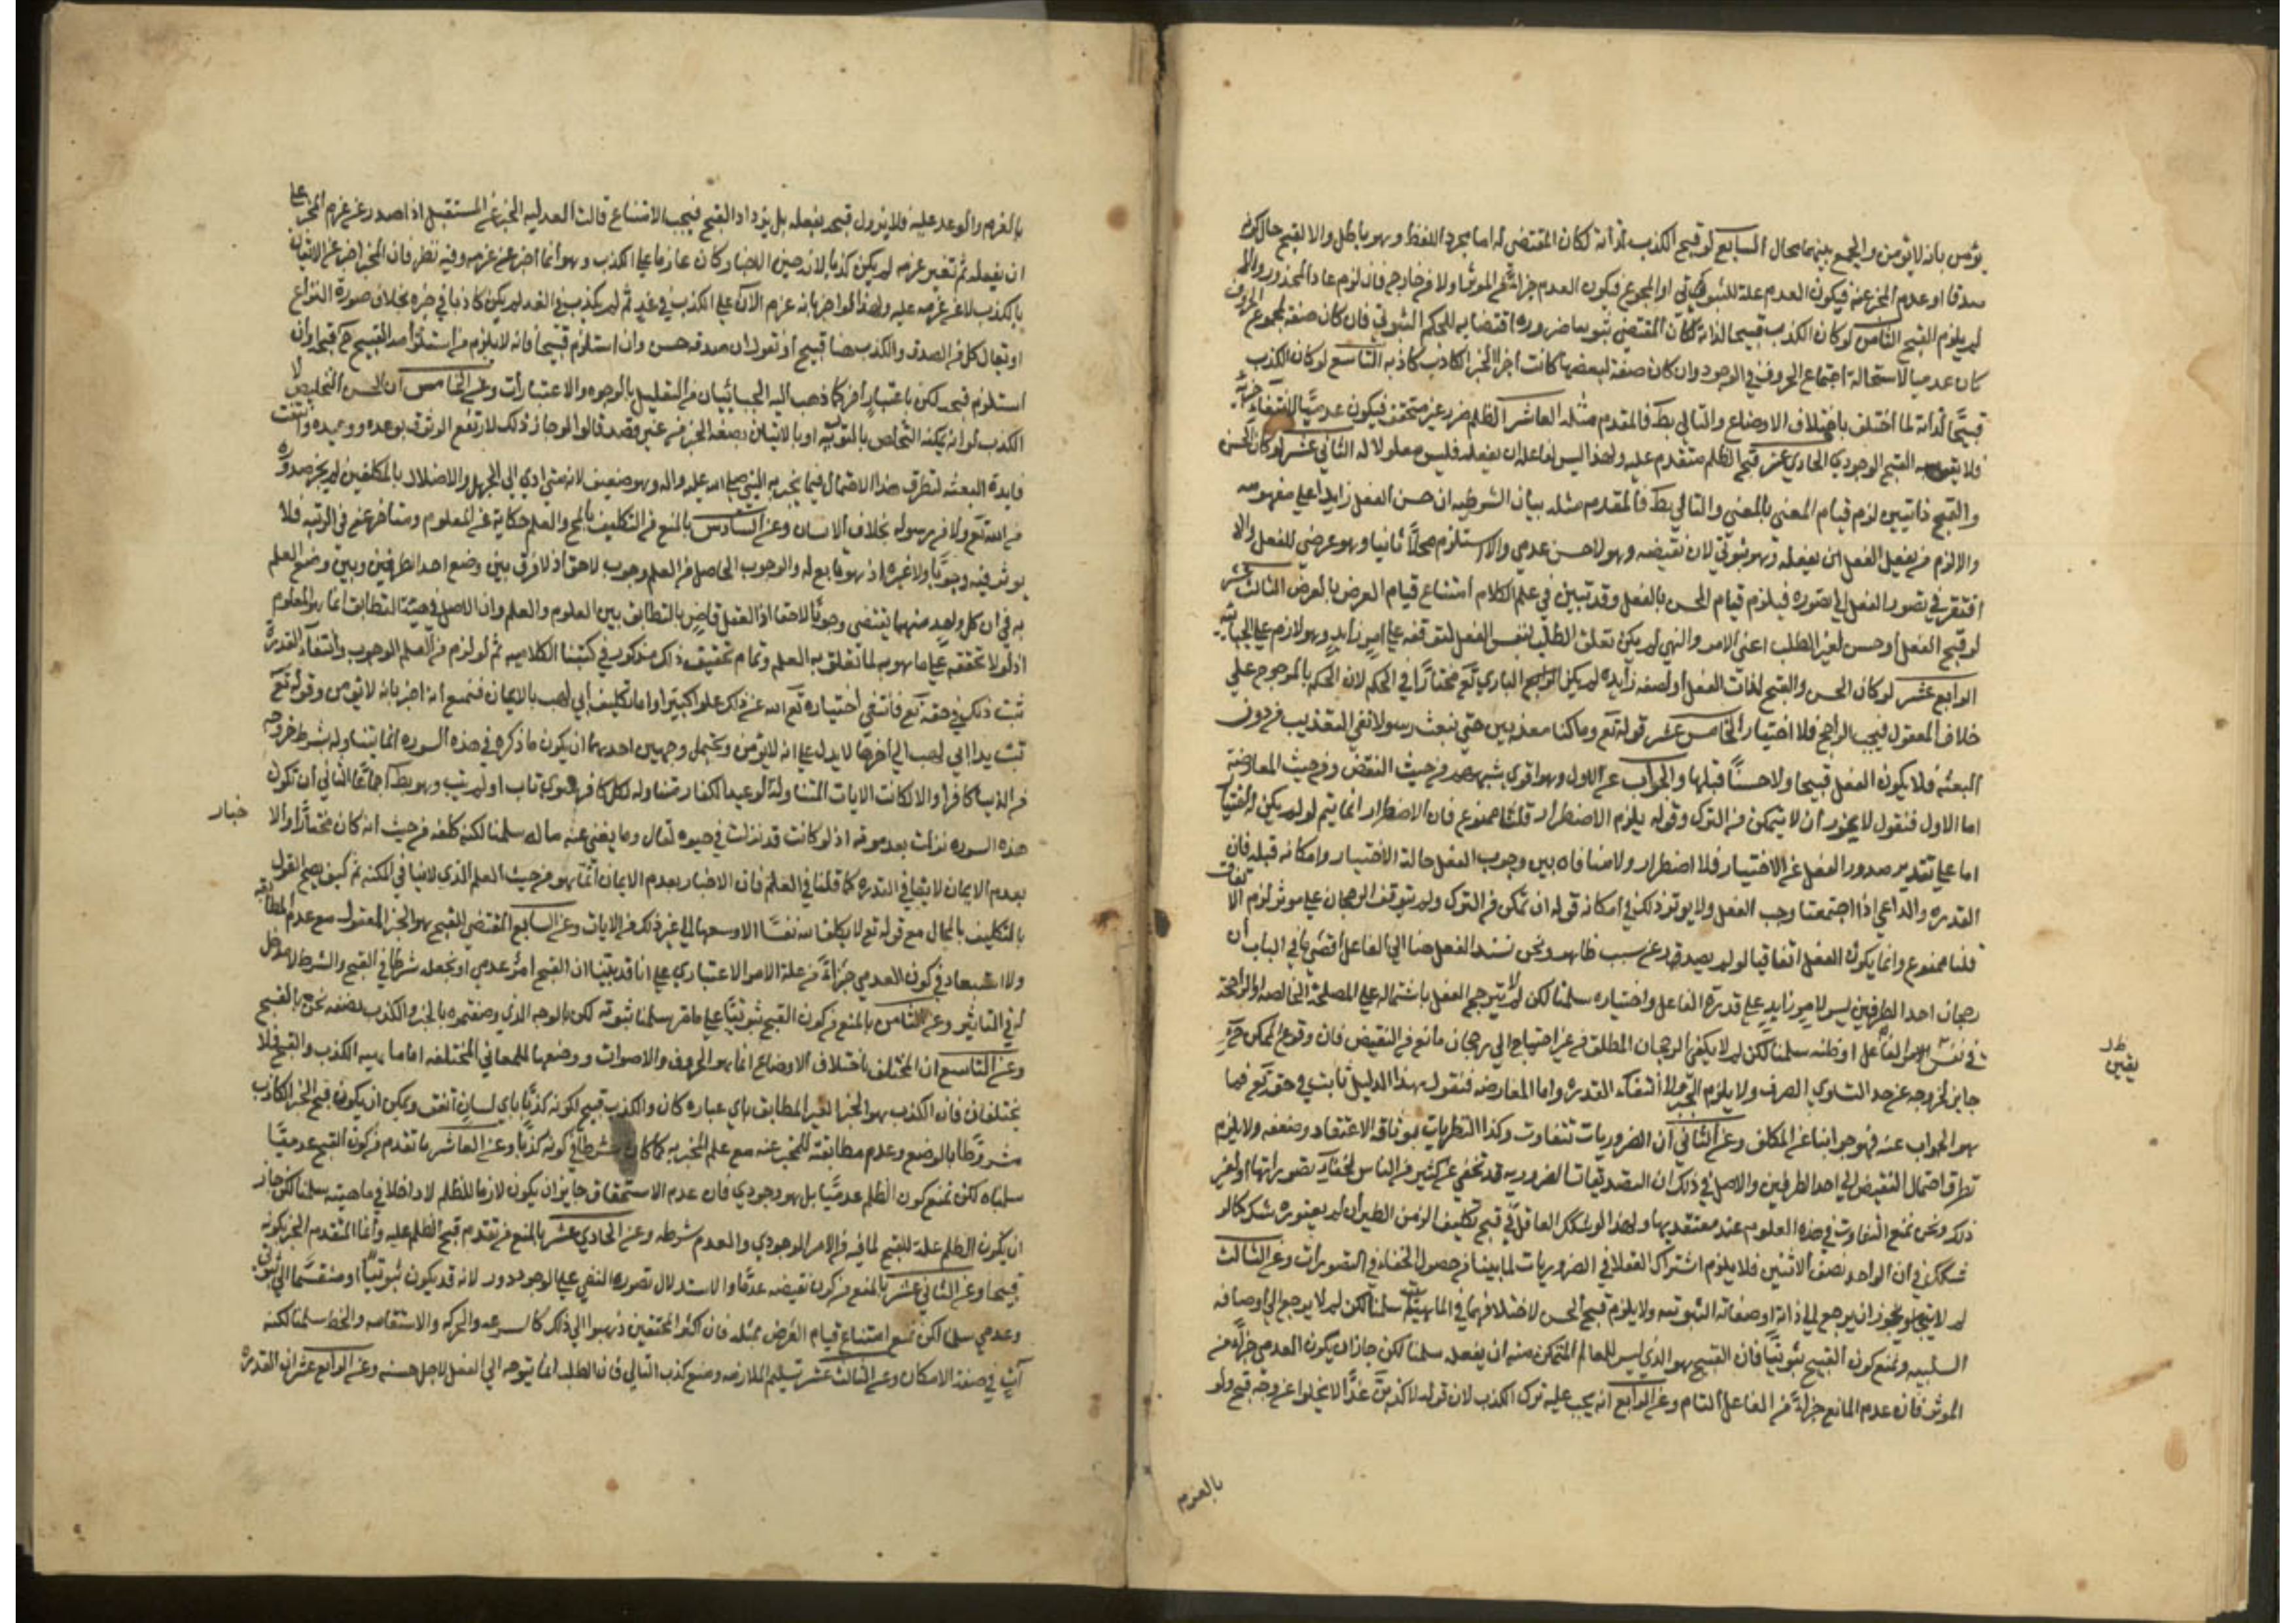 يؤمن بانه لا يؤمن والجمع بينهما محال السابع لو قبح الكذب لذاته لكان المقتضي له اما مجرد اللفظ وهو باطل والا لقبح حال كونه
صدقا او عدم المخبر عنه فيكون العدم علة للثبوتي او المجموع فيكون العدم جزا من المؤثر او لا من خارج فان لزم عاد المحذور والا
لم يلزم القبح الثامن لو كان الكذب قبيحا لذاته لكان المقتضي ثبوتيا ضرورة اقتضايه للحكم الثبوتي فان كان صفة لمجموع الحروف
كان عدميا لاستحالة اجتماع الحروف في الوجود وان كان صفة لبعضها كانت اجزا الخبر الكاذب كاذبه التاسع لو كان الكذب
قبيحا لذاته لما اختلف باختلاف الاوضاع والتالي بط فالمقدم مثله العاشر الظلم ضرر غير مستحق فيكون عدميا لانتفاء جزئه
فلا يقوم به القبح الوجودي الحادي عشر قبح الظلم متقدم عليه ولهذا ليس لفاعله ان يفعله فليس معلولا له الثاني عشر لو كان الحسن
والقبح ذاتيين لزم قيام المعنى بالمعنى والتالي بط فالمقدم مثله بيان الشرطيه ان حسن الفعل زايد على مفهومه
والا لزم من تعقل الفعل ان يعقله وهو ثبوتي لان نقيضه وهو لا حسن عدمي والا استلزم محلا ثانيا وهو عرضي للفعل والا
افتقر في تصور الفعل الى تصوره فيلزم قيام الحسن بالفعل وقد تبين في علم الكلام امتناع قيام العرض بالعرض الثالث عشر
لو قبح الفعل او حسن لغير الطلب اعني الامر والنهي لم يكن تعلق الطلب لنفس الفعل لتوقفه على امر زايد وهو لازم على الجبائيه
الرابع عشر لو كان الحسن والقبح لذات الفعل او لصفه زايده لم يكن الباري تع مختارا في الحكم لان الحكم بالمرجوح على
خلاف المعقول فيجب الراجح فلا اختيار الخامس عشر قوله تع وما كنا معذبين حتى نبعث رسولا نفي التعذيب من دون
البعثه فلا يكون الفعل قبيحا ولا حسنا قبلها والجواب عن الاول وهو اقوى شبههم من حيث النقض ومن حيث المعارضة
اما الاول فنقول لا يجوز ان لا يتمكن من الترك وقوله يلزم الاضطرار قلنا ممنوع فان الاضطرار انما يتم لو لم يكن اختيار
اما على تقدير صدور الفعل عن الاختيار فلا اضطرار ولا منافاه بين وجوب الفعل حالة الاختيار وامكانه قبله فان
القدره والداعي اذا اجتمعتا وجب الفعل ولا يؤثر ذلك في امكانه قوله ان تمكن من الترك ولم يتوقف الرجحان على مؤثر لزم الاتفاق
قلنا ممنوع وانما يكون الفعل اتفاقيا لو لم يصدر عن سبب ظاهر ونحن نسند الفعل هنا الى الفاعل اقصى ما في الباب ان
رجحان احد الطرفين ليس لامر زايد على قدرة الفاعل واختياره سلمنا لكن لم لا يترجح الفعل باشتماله على المصلحة الخالصه او الراجحة
في نفس الامر او ظنه سلمنا لكن لم لا يكفي الرجحان المطلق من غير احتياج الى رجحان مانع من النقيض فان وقوع الممكن ح
جايز لخروجه عن حد التساوي الصرف ولا يلزم الجبر ولا انتفاء القدره واما المعارضه فنقول هذا الدليل ثابت في حقه تع فما
هو الجواب عنه فهو جوابنا عن المكلف وعن الثاني ان الضروريات تتفاوت وكذا النظريات بوثاقة الاعتقاد وضعفه ولا يلزم
تطرق احتمال النقيض الى احد الطرفين والاصل في ذلك ان التصديقات الضروريه قد تخفى عن كثير من الناس لخفاء تصوراتها او لغير
ذلك ونحن نمنع التفاوت في هذه العلوم عند معتقديها ولهذا لو شكك العاقل في قبح تكليف الزمن الطيران لم يعتوره شك كما لو
شكك في ان الواحد نصف الاثنين فلا يلزم اشتراك العقلا في الضروريات لما بينا من حصول الخفاء في التصورات وعن الثالث
لم لا يجوز ان يرجع الى ذاته او صفاته الثبوتيه ولا يلزم قبح الحسن لاختلافهما في الماهية سلمنا لكن لم لا يرجع الى اوصافه
السلبيه ونمنع كون القبيح ثبوتيا فان القبيح هو الذي ليس للعالم المتمكن منه ان يفعله سلمنا لكن جاز ان يكون العدمي جزا من
المؤثر فان عدم المانع جزء من الفاعل التام وعن الرابع انه يجب عليه ترك الكذب لان قوله لاكذبن غدا لا يخلوا عن وجه قبح ولو
بالعزم
يقين
بالعزم والوعد عليه فلا يزول قبحه بفعله بل يزداد القبح فيجب الامتناع قالت العدليه الخبر عن المستقبل اذا صدر عن عزم المخبر على
ان يفعله ثم تغير عزمه لم يكن كذبا لانه حين الاخبار كان عازما على الكذب وهو انما اخبر عن عزمه وفيه نظر فان المخبر اخبر عن الاتيان
بالكذب لا عن عزمه عليه ولهذا لو اخبر بانه عزم الان على الكذب في غد ثم لم يكذب في الغد لم يكن كاذبا في خبره بخلاف صورة النزاع
او تقال كل من الصدق والكذب هنا قبيح او نقول ان صدقه حسن وان استلزم قبيحا فانه لا يلزم من استلزامه القبيح ح قبحه وان
استلزم قبحه لكن باعتبار اخر كما ذهب اليه الجبائيان من التعليل بالوجوه والاعتبارات وعن الخامس ان الحسن التخليص لا
الكذب لو انه يمكنه التخلص بالتوريه او بالاتيان بصيغه الخبر من غير قصد قالوا لو جاز ذلك لارتفع الوثوق بوعده ووعيده وانتفت
فايدة البعثه لتطرق هذا الاحتمال فيما يخبر به النبي صلى الله عليه واله وهو ضعيف لانه متى ادى الى الجهل والاضلال بالمكلفين لم يجز صدوره
من الله تع ولا من رسوله بخلاف الانسان وعن السادس بالمنع من التكليف بالمح والعلم حكاية عن المعلوم ومتاخر عنه في الرتبه فلا
يوثر فيه وجوبا ولا غيره اذ هو تابع له والوجوب الحاصل من العلم وجوب لاحق اذ لا فرق بين وضع احد الطرفين وبين وضع العلم
به في ان كل واحد منهما يقتضي وجوبا لاحقا اذ العقل قاض بالتطابق بين العلوم والعلم وان الاصل في هيئة التطابق انما هو المعلوم
اذ لولا تحققه على ما هو به لما تعلق به العلم وتمام تحقيق ذلك مذكور في كتبنا الكلاميه ثم لو لزم من العلم الوجوب وانتفاء القدرة
ثبت ذلك في حقه تع فانتفى اختياره تع الله عن ذلك علوا كبيرا واما تكليف ابي لهب بالايمان فنمنع انه اخبر بانه لا يؤمن وقوله تع
تبت يدا ابي لهب الى اخرها لا يدل على انه لا يؤمن ويحتمل وجهين احدهما ان يكون ما ذكره في هذه السوره انما يتناوله بشرط خروجه
من الدنيا كافرا والا لكانت الايات المتناولة لوعيد الكفار متناوله لكل كافر سوى تاب او لم يتب وهو بط اجماعا الثاني ان تكون
هذه السوره نزلت بعد موته اذ لو كانت قد نزلت في حيوته لقال وما يغني عنه ماله سلمنا لكنه كلفه من حيث انه كان مختارا والا
خبار
بعدم الايمان لا ينافي القدره كما قلنا في العلم فان الاخبار بعدم الايمان انما هو من حيث العلم الذي لا ينافي المكنه ثم كيف يصح القول
بالتكليف بالمحال مع قوله تع لا يكلف الله نفسا الا وسعها الى غير ذلك من الايات وعن السابع المقتضي للقبح هو الخبر المعقول مع عدم المطابقه
ولا استبعاد في كون العدمي جزءا من علة الامر الاعتباري على انا قد بينا ان القبح امر عدمي او نجعله شرطا في القبح والشرط لا مدخل
له في التاثير وعن الثامن بالمنع من كون القبح ثبوتيا على ما مر سلمنا ثبوته لكن بالوجه الذي وصفتموه بالخبر والكذب نصفه نحن بالقبح
وعن التاسع ان المختلف باختلاف الاوضاع انما هو الحروف والاصوات ووضعها للمعاني المختلفه اما ماهيه الكذب والقبح فلا
يختلفان فان الكذب هو الخبر الغير المطابق باي عباره كان والكذب قبيح لكونه كذبا باي لسان اتفق ويمكن ان يكون قبح الخبر الكاذب
مشروطا بالوضع وعدم مطابقته للمخبر عنه مع علم المخبر به كما كان شرطا في كونه كذبا وعن العاشر ما تقدم من كون القبح عدميا
سلمناه لكن نمنع كون الظلم عدميا بل هو وجودي فان عدم الاستحقاق جايز ان يكون لازما للظلم لا داخلا في ماهيته سلمنا لكن جاز
ان يكون الظلم علة للقبح لما فيه من الامر الوجودي والعدم شرطه وعن الحادي عشر بالمنع من تقدم قبح الظلم عليه وانما المتقدم الخبر بكونه
قبيحا وعن الثاني عشر بالمنع من كون نقيضه عدما والاستدلال بصورة النفي على الوجود دور لانه قد يكون ثبوتيا او منقسما الى ثبوتي
وعدمي سلمنا لكن نمنع امتناع قيام العرض بمثله فان اكثر المحققين ذهبوا الى ذلك كالسرعه والحركه والاستقامه والخط سلمنا لكنه
آت في صفة الامكان وعن الثالث عشر تسليم الملازمه ومنع كذب التالي فان الطلب انما يتوجه الى الفعل لاجل حسنه وعن الرابع عشر ان القدرة